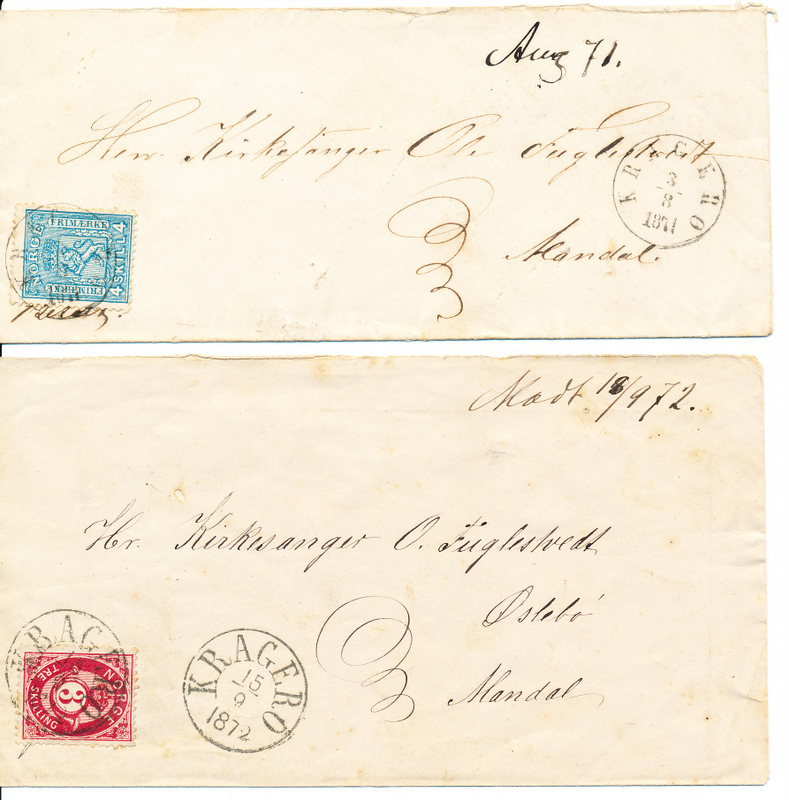 Aug 71.
Herr Kirkesanger Ole Fuglestvedt
KRAGERØ
3
8
1871
NORGE
FRIMÆRKE
4 SKILL. 4
FRIMÆRKE
Mandal.
Modt 18/9 72.
Hr. Kirkesanger O. Fuglestvedt
Øslebø
Mandal
KRAGERØ
NORGE
TRE SKILLING
3
KRAGERØ
15
9
1872